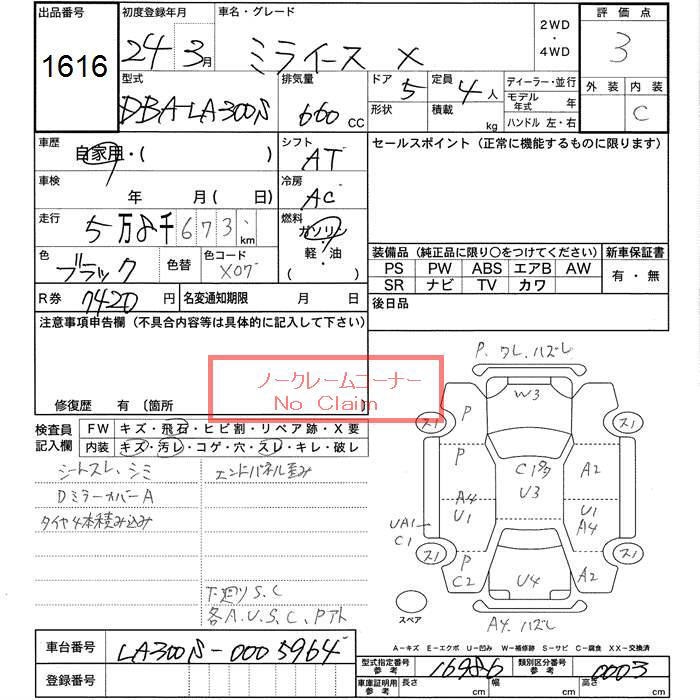 出品番号 初度登録年月 車名・グレード 2WD・4WD 評価点
1616 24 3月 ミライース X 3
型式 排気量 ドア 5 定員 4人 ディーラー・並行 外装 内装
DBA-LA300S 660cc 形状 積載 kg モデル年式 年 C
ハンドル 左・右
車歴 自家用・( ) シフト AT セールスポイント (正常に機能するものに限ります)
車検 年 月( 日) 冷房 AC
走行 5万8千673km 燃料 ガソリン 軽・油 ( )
色 ブラック 色替 色コード X07 装備品 (純正品に限り○をつけてください) 新車保証書
PS PW ABS エアB AW 有・無
SR ナビ TV カワ
R券 7420円 名変通知期限 月 日 後日品
注意事項申告欄 (不具合内容等は具体的に記入して下さい)
ノークレームコーナー
No Claim
修復歴 有 〔箇所
検査員記入欄 FW キズ・飛石・ヒビ割・リペア跡・X要
内装 キズ・汚レ・コゲ・穴・スレ・キレ・破レ
シートスレ、シミ エンドパネル歪み
Dミラーカバー A
タイヤ4本積み込み
下廻りS.C
各A.U.S.C.Pアト
P.ワレ.ハズレ
W3
ス1 P ス1
P C1多 A2
U3
A4 U1
U1 A4
UA1
C1
ス1 P ス1
C2 U4 A2
スペア A4.ハズレ
A−キズ E−エクボ U−凹み W−補修跡 S−サビ C−腐食 XX−交換済
車台番号 LA300S-0005964
登録番号
型式指定番号 参考 16986 類別区分番号 参考 0003
車庫証明用 参考 長さ cm 幅 cm 高さ cm